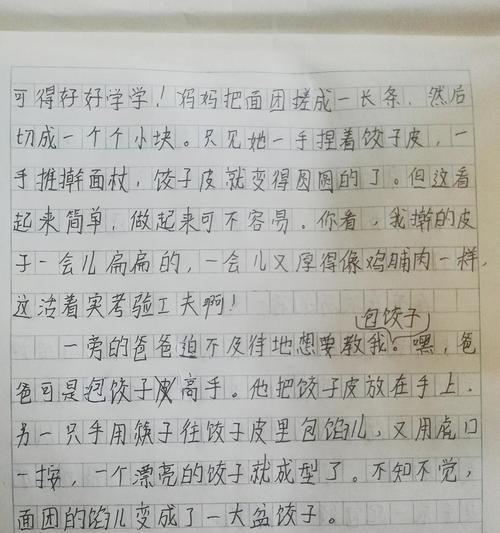 可得好好学学！妈妈把面团搓成一长条，然后
切成一个个小块。只见她一手捏着饺子皮，一
手推擀面杖，饺子皮就变得圆圆的了。但这看
起来简单，做起来可不容易。你看，我擀的皮
子一会儿扁扁的，一会儿又厚得像鸡脯肉一样，
这活着实考验工夫啊！
包饺子
一旁的爸爸迫不及待地想要教我。嘿，爸
爸可是包饺子高手。他把饺子皮放在手上，
另一只手用筷子往饺子皮里包馅儿，又用虎口
一按，一个漂亮的饺子就成型了。不知不觉，
面团的馅儿变成了一大盆饺子。